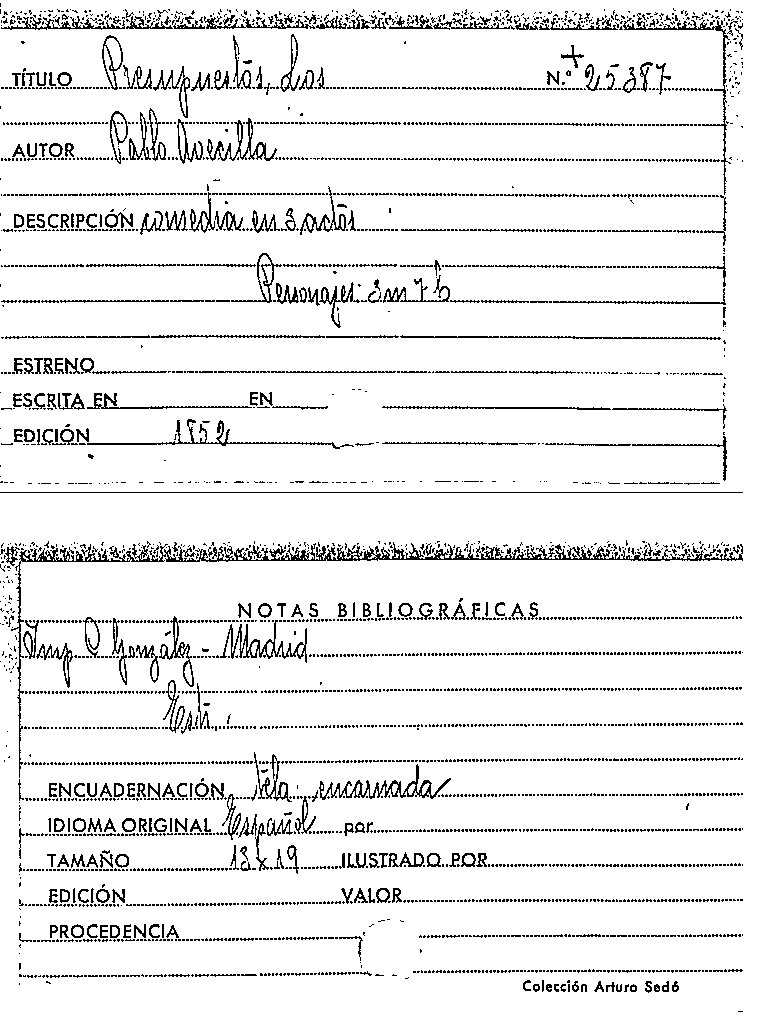 TÍTULO Presupuestos, Los N.º + 25387
AUTOR Pablo Avecilla
DESCRIPCIÓN comedia en 3 actos
Personajes: 3 m 7 h
ESTRENO
ESCRITA EN EN
EDICIÓN 1852
NOTAS BIBLIOGRÁFICAS
Imp C González - Madrid
ENCUADERNACIÓN tela encarnada
IDIOMA ORIGINAL Español por
TAMAÑO 13 x 19 ILUSTRADO POR
EDICIÓN VALOR
PROCEDENCIA
Colección Arturo Sedó